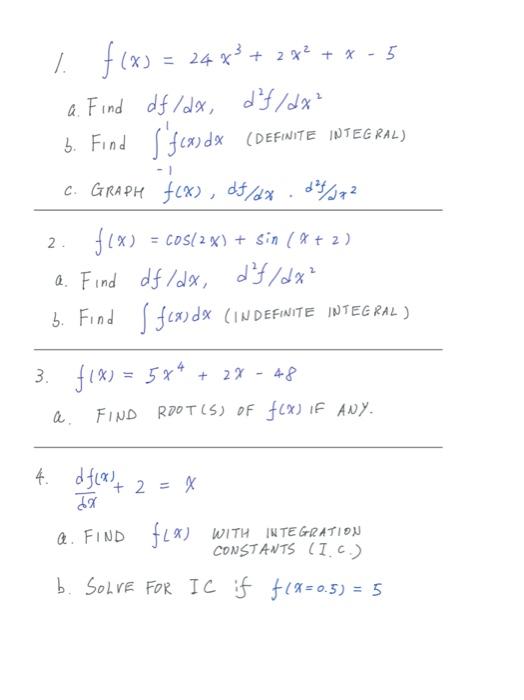 1. f(x) = 24x³ + 2x² + x - 5
a. Find df/dx, d²f/dx²
b. Find ∫₋₁¹ f(x)dx (DEFINITE INTEGRAL)
c. GRAPH f(x), df/dx . d²f/dx²
2. f(x) = cos(2x) + sin(x+2)
a. Find df/dx, d²f/dx²
b. Find ∫ f(x)dx (INDEFINITE INTEGRAL)
3. f(x) = 5x⁴ + 2x - 48
a. FIND ROOT(S) OF f(x) IF ANY.
4. df(x)/dx + 2 = x
a. FIND f(x) WITH INTEGRATION
CONSTANTS (I.C.)
b. SOLVE FOR IC if f(x=0.5) = 5